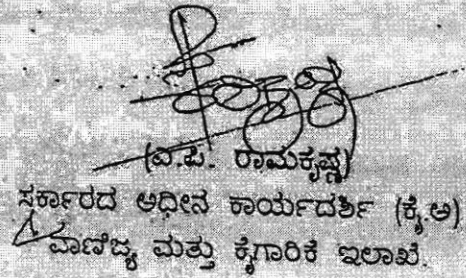 (ವಿ.ಪಿ. ರಾಮಕೃಷ್ಣ)
ಸರ್ಕಾರದ ಅಧೀನ ಕಾರ್ಯದರ್ಶಿ (ಕೈ.ಅ)
ವಾಣಿಜ್ಯ ಮತ್ತು ಕೈಗಾರಿಕೆ ಇಲಾಖೆ.